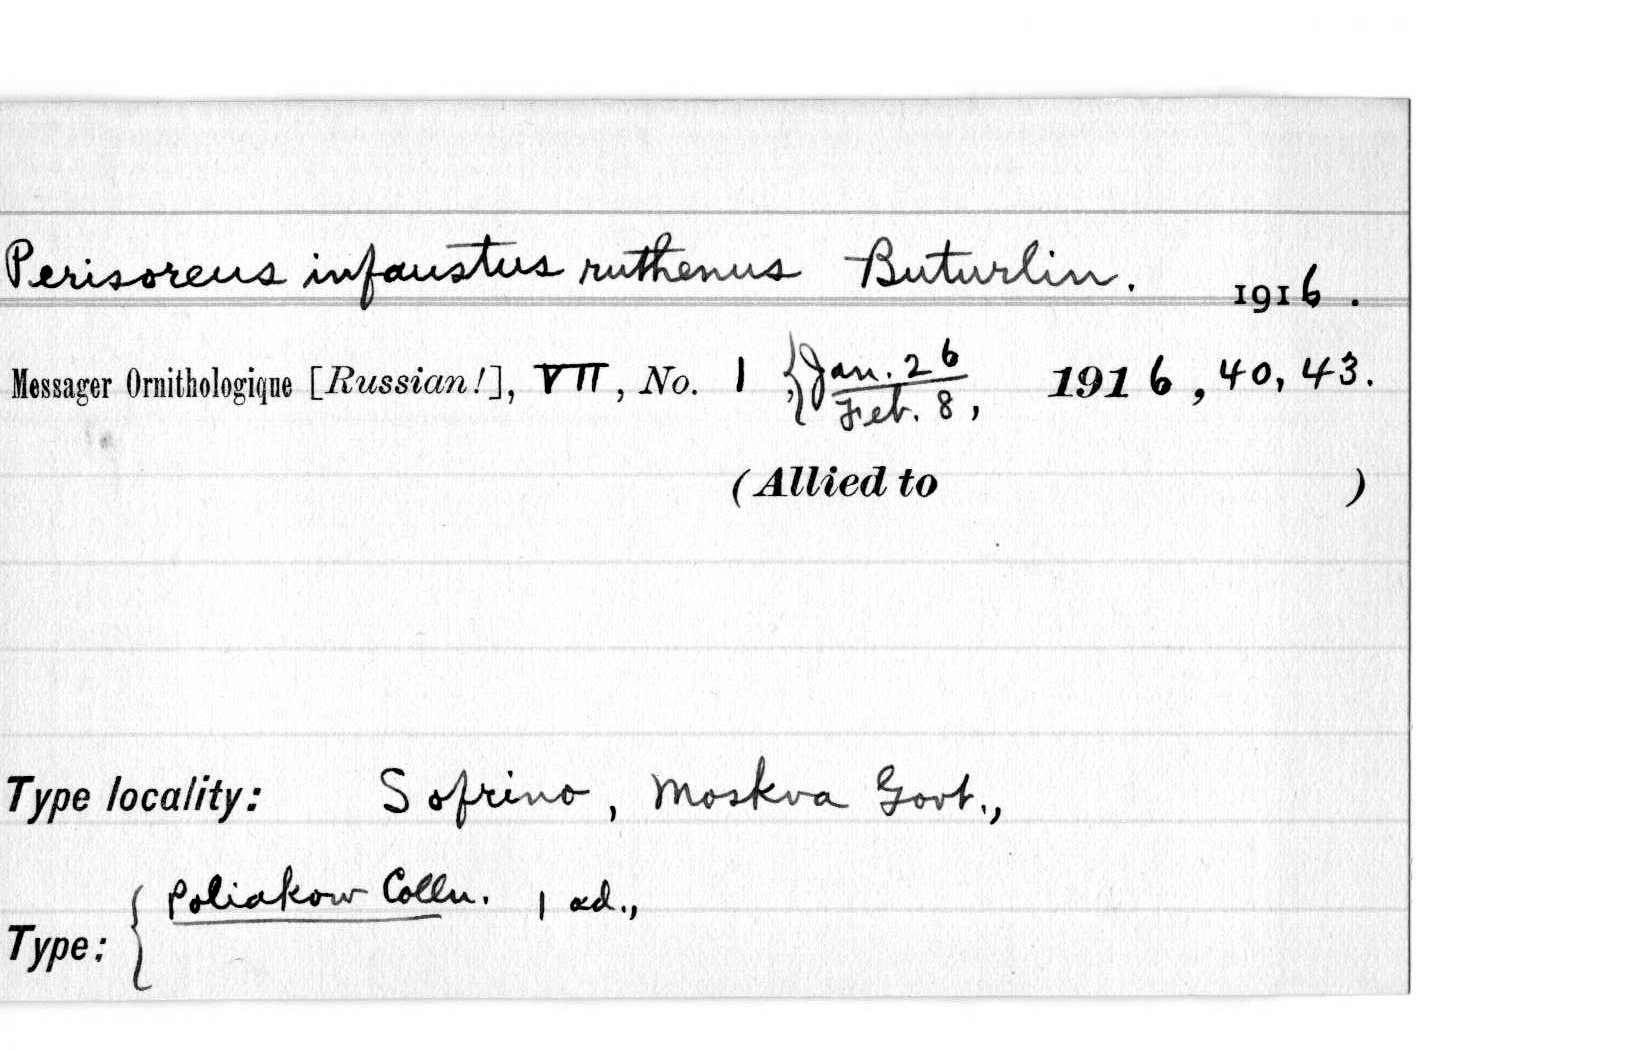 Perisoreus infaustus ruthenus Buturlin. 1916.
Messager Ornithologique [Russian!], VII, No. 1 {Jan. 26
Feb. 8, 1916, 40, 43.
(Allied to )
Type locality: Sofrino, Moskva Govt.,
Type: { Poliakow Colln. 1 ad.,